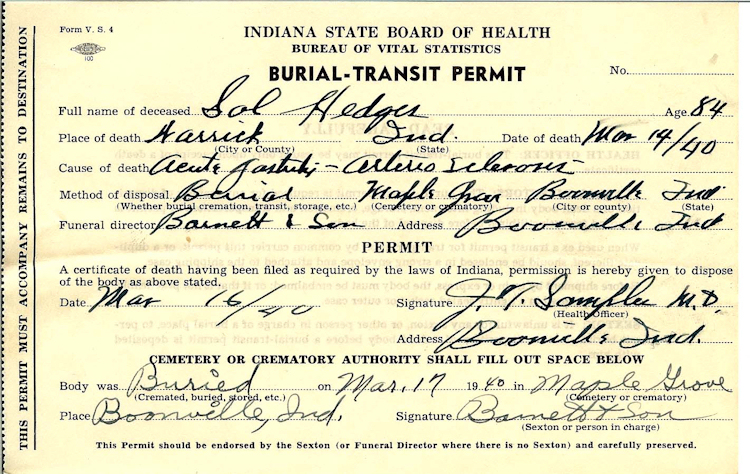 Form V. S. 4
100
INDIANA STATE BOARD OF HEALTH
BUREAU OF VITAL STATISTICS
BURIAL-TRANSIT PERMIT
No.
Full name of deceased Sol Hedges Age 84
Place of death Warrick Ind. Date of death Mar 14/40
(City or County) (State)
Cause of death Acute gastritis - Arterio Sclerosis
Method of disposal Burial Maple Grov Boonville Ind
(Whether burial cremation, transit, storage, etc.) (Cemetery or crematory) (City or county) (State)
Funeral director Barnett & Son Address Boonville Ind
PERMIT
A certificate of death having been filed as required by the laws of Indiana, permission is hereby given to dispose
of the body as above stated.
Date Mar 16/40 Signature J. T. Samples M.D
(Health Officer)
Address Boonville Ind.
CEMETERY OR CREMATORY AUTHORITY SHALL FILL OUT SPACE BELOW
Body was Buried on Mar. 17 1940 in Maple Grove
(Cremated, buried, stored, etc.) (Cemetery or crematory)
Place Boonville, Ind. Signature Barnett & Son
(Sexton or person in charge)
This Permit should be endorsed by the Sexton (or Funeral Director where there is no Sexton) and carefully preserved.
THIS PERMIT MUST ACCOMPANY REMAINS TO DESTINATION